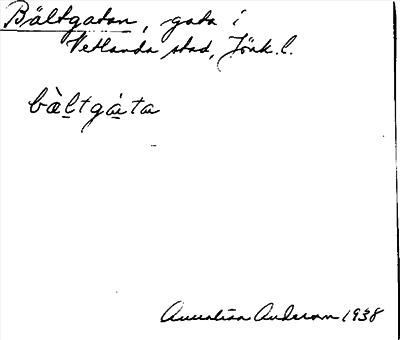 Bältgatan, gata i
Vetlanda stad, Jönk.l.
bàltgáta
Anderson 1938